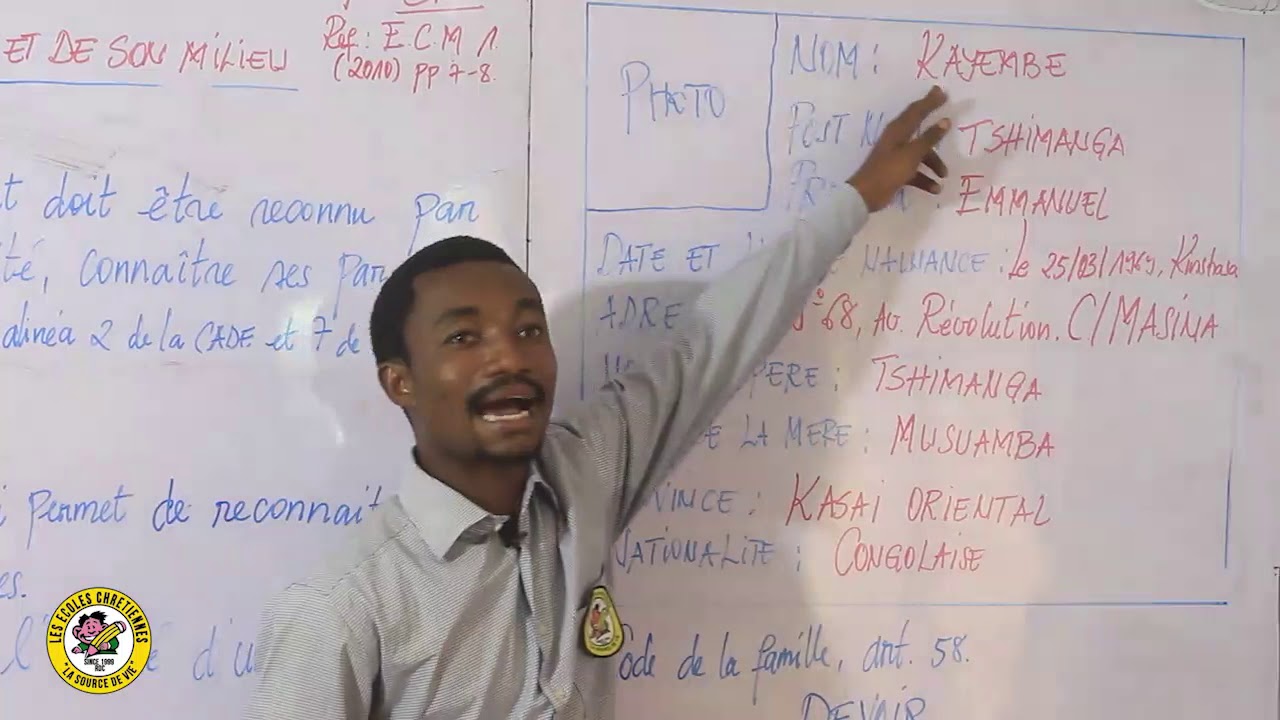 ET DE SON MILIEU
Réf.: E.C.M 1.
(2010) pp 7-8.
t doit être reconnu par
té, connaître ses par
alinéa 2 de la CADE et 7 de
i permet de reconnait
es.
l'
d'u
PHOTO
NOM : KAYEMBE
POST TSHIMANGA
: EMMANUEL
DATE ET NAISSANCE : Le 25/03/1969, Kinshasa
ADRE 68, Av. Révolution. C/MASINA
PERE : TSHIMANGA
DE LA MERE : MUSUAMBA
VINCE : KASAI ORIENTAL
NATIONALITE : CONGOLAISE
Code de la famille, art. 58.
DEVOIR
LES ECOLES CHRETIENNES
SINCE 1999
RDC
"LA SOURCE DE VIE"